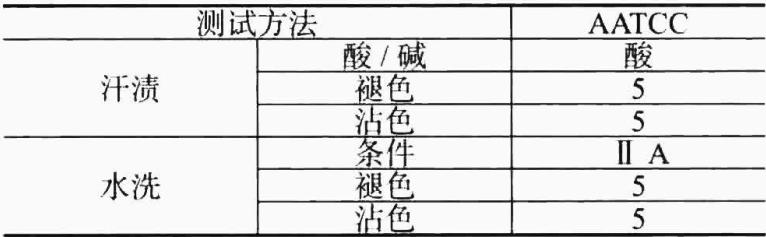 测试方法 AATCC
汗渍 酸/碱 酸
褪色 5
沾色 5
水洗 条件 Ⅱ A
褪色 5
沾色 5